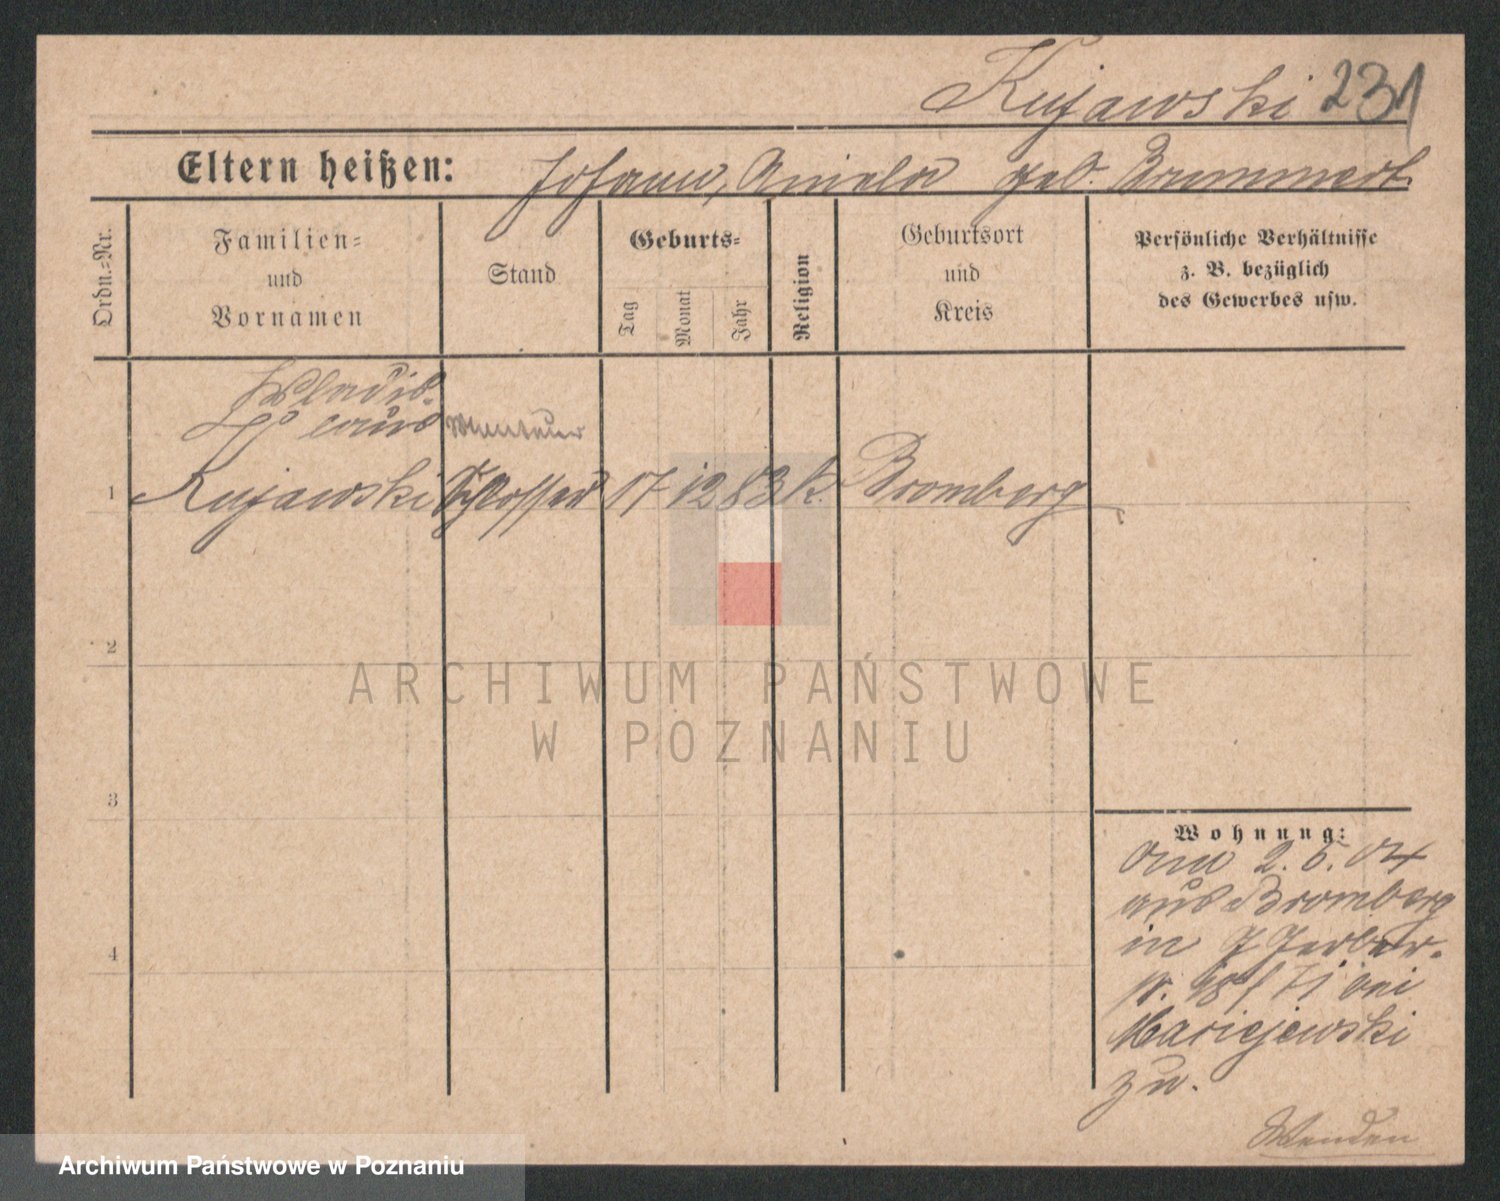 Kujawski 231
Eltern heißen: Johann, Aniela geb. Brummert
Ordn.=Nr.
Familien=
und
Vornamen
Stand
Geburts=
Tag
Monat
Jahr
Religion
Geburtsort
und
Kreis
Persönliche Verhältnisse
z. B. bezüglich
des Gewerbes usw.
Wladis-
laus
Monteur
1 Kujawski Schlosser 17 12 83 k. Bromberg
2
3
4
Wohnung:
am 2. 5. 04
aus Bromberg
in Gerber-
bei
Maciejewski
zu.
Wenden
ARCHIWUM PAŃSTWOWE
W POZNANIU
Archiwum Państwowe w Poznaniu